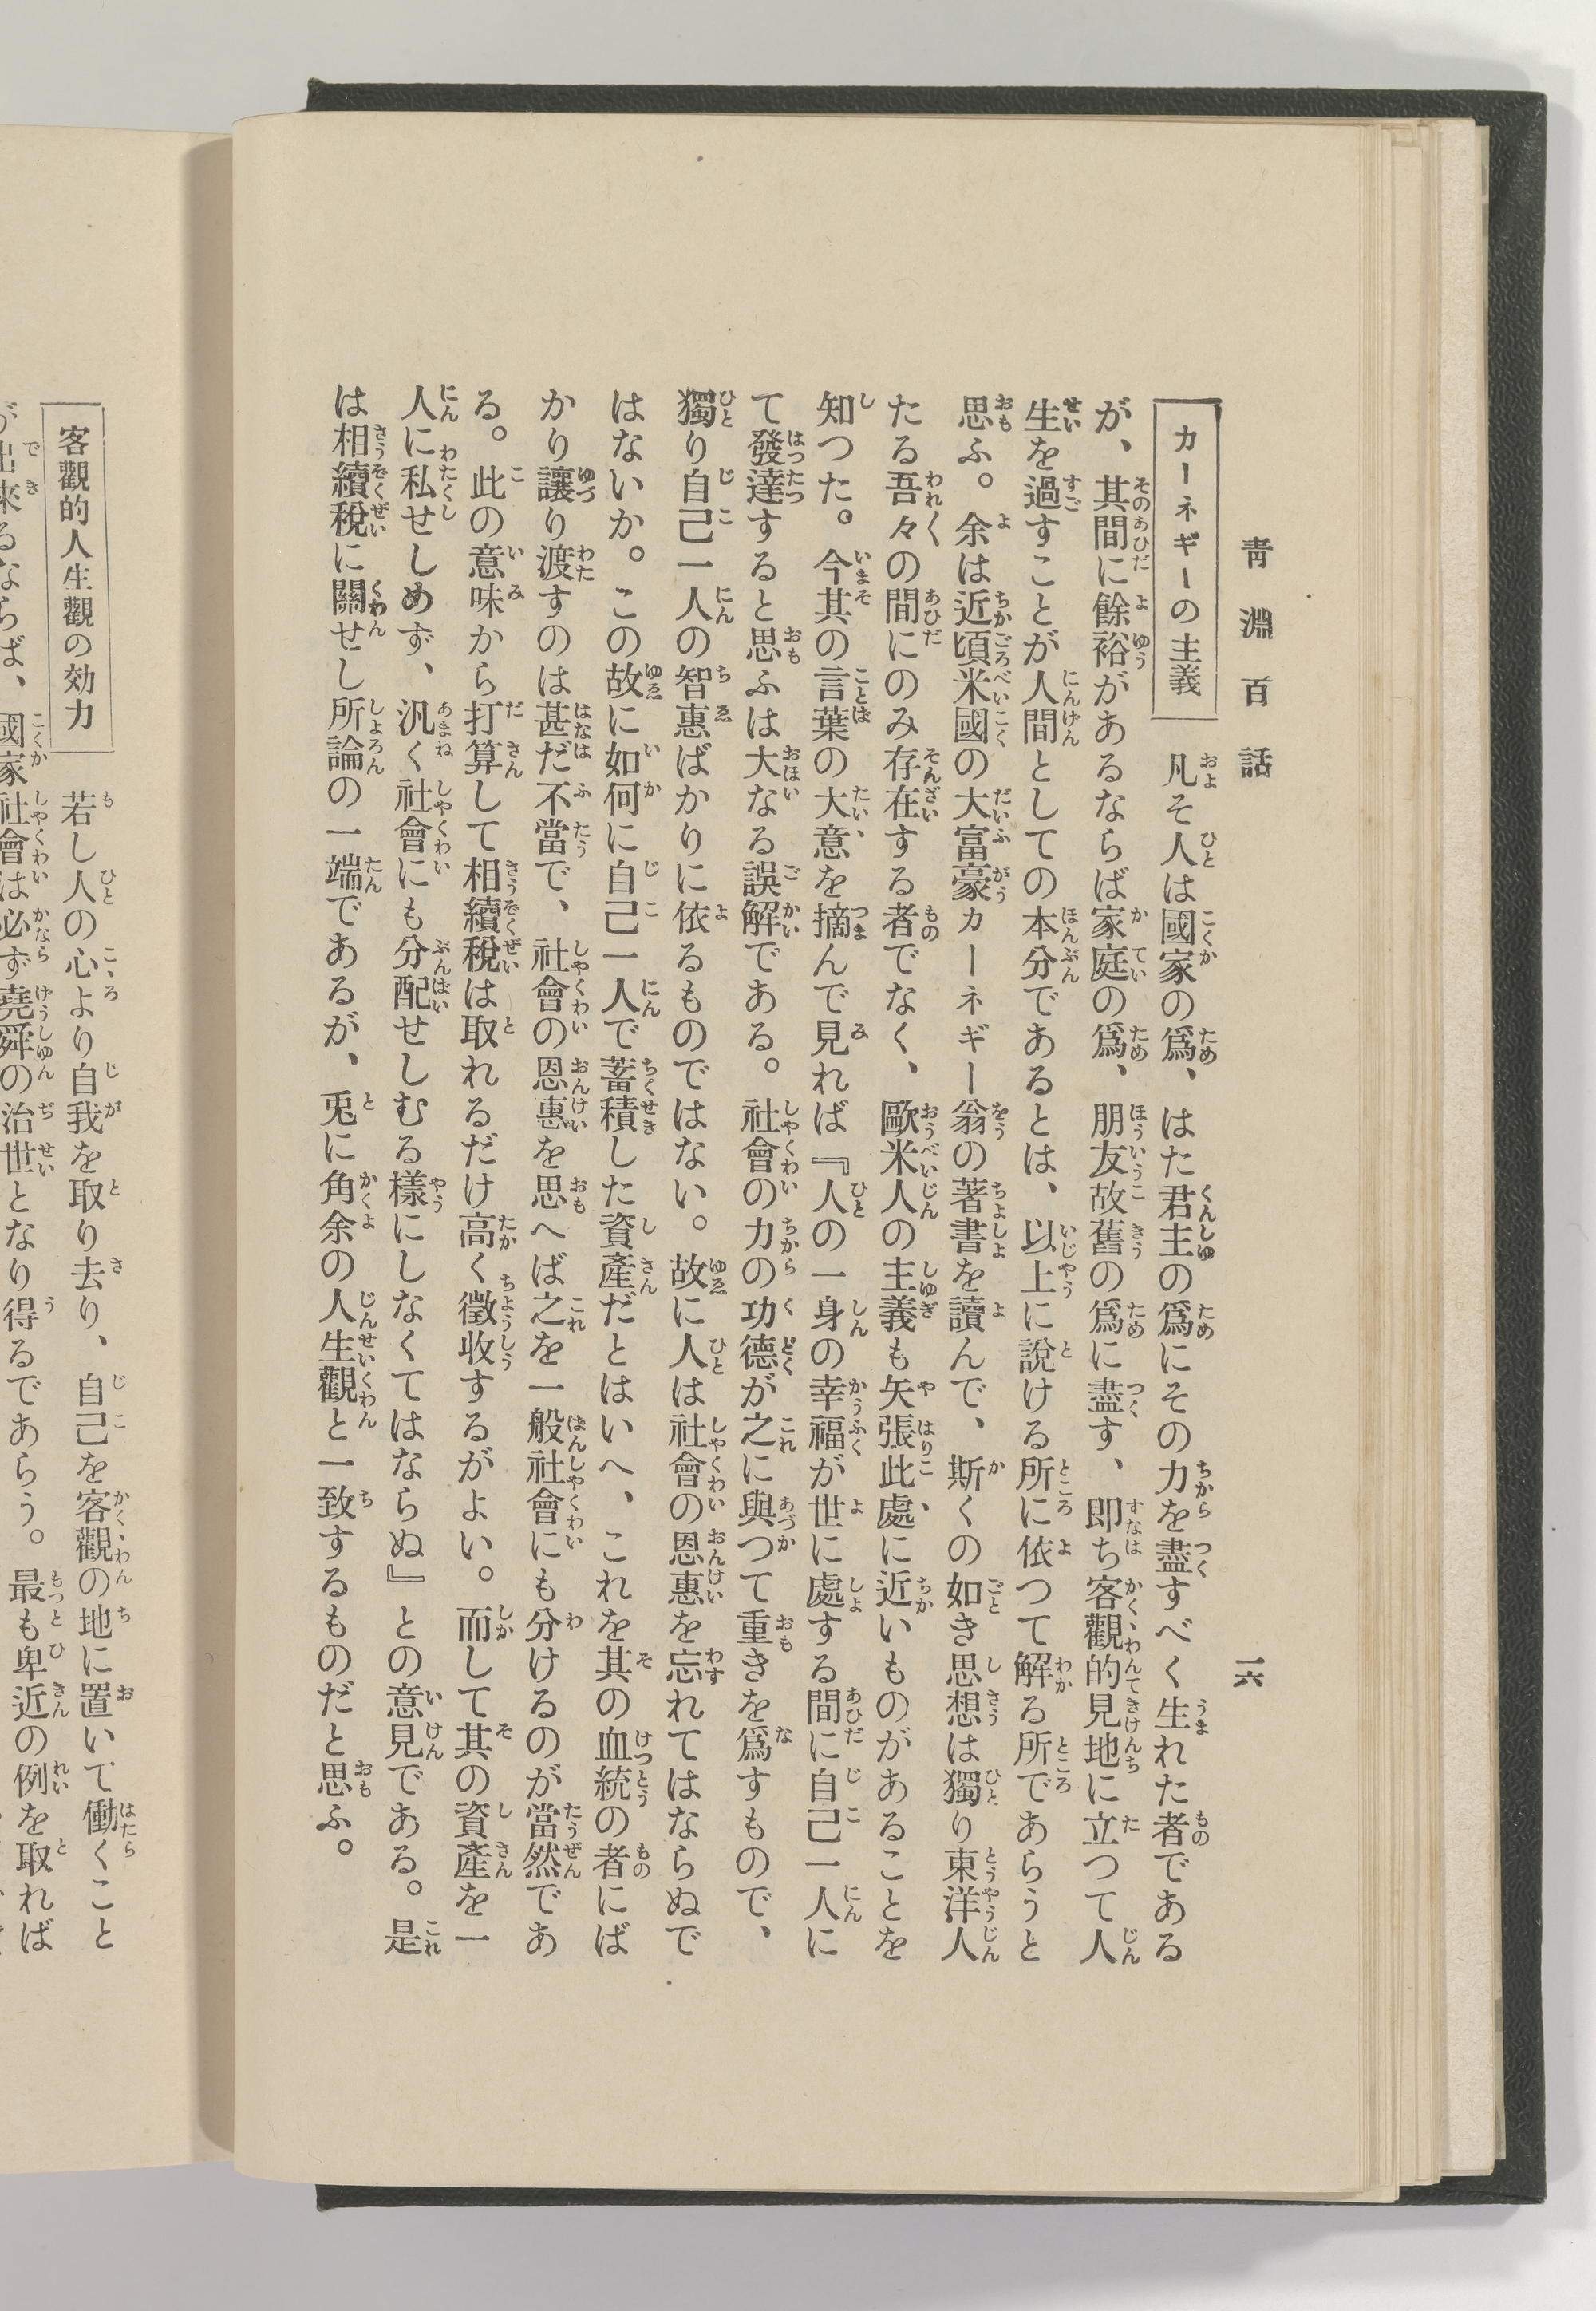 靑淵百話
一六
カーネギーの主義
凡そ人は國家の爲、はた君主の爲にその力を盡すべく生れた者である
が、其間に餘裕があるならば家庭の爲、朋友故舊の爲に盡す、即ち客觀的見地に立つて人
生を過すことが人間としての本分であるとは、以上に說ける所に依つて解る所であらうと
思ふ。余は近頃米國の大富豪カーネギー翁の著書を讀んで、斯くの如き思想は獨り東洋人
たる吾々の間にのみ存在する者でなく、歐米人の主義も矢張此處に近いものがあることを
知つた。今其の言葉の大意を摘んで見れば『人の一身の幸福が世に處する間に自己一人に
て發達すると思ふは大なる誤解である。社會の力の功德が之に與つて重きを爲すもので、
獨り自己一人の智惠ばかりに依るものではない。故に人は社會の恩惠を忘れてはならぬで
はないか。この故に如何に自己一人で蓄積した資產だとはいへ、これを其の血統の者にば
かり讓り渡すのは甚だ不當で、社會の恩惠を思へば之を一般社會にも分けるのが當然であ
る。此の意味から打算して相續稅は取れるだけ高く徵收するがよい。而して其の資產を一
人に私せしめず、汎く社會にも分配せしむる樣にしなくてはならぬ』との意見である。是
は相續稅に關せし所論の一端であるが、兎に角余の人生觀と一致するものだと思ふ。
客觀的人生觀の効力
若し人の心より自我を取り去り、自己を客觀の地に置いて働くこと
が出來るならば、國家社會は必ず堯舜の治世となり得るであらう。最も卑近の例を取れば